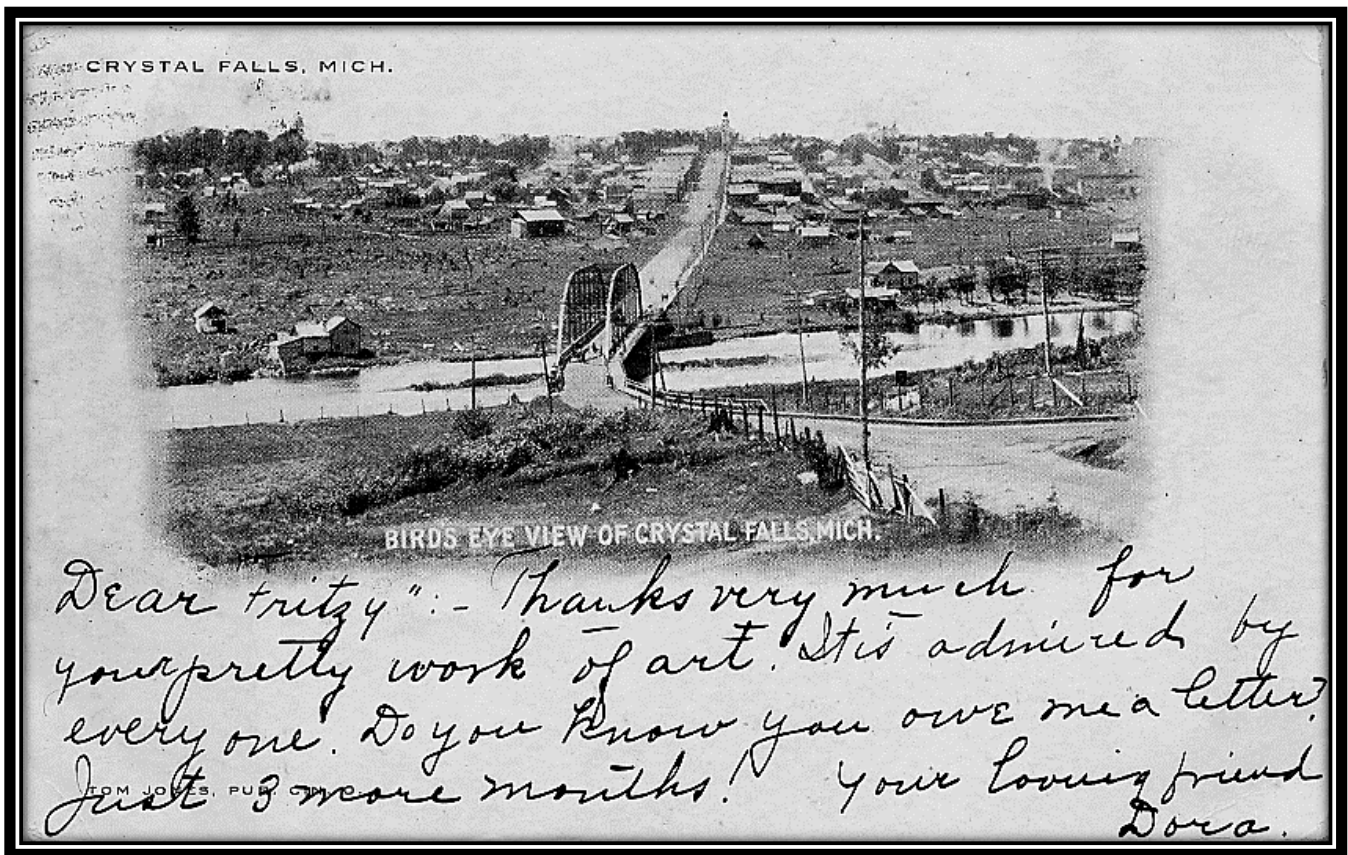 CRYSTAL FALLS, MICH.
BIRD'S EYE VIEW OF CRYSTAL FALLS, MICH.
Dear Fritzy":- Thanks very much for
your pretty work of art. It is admired by
everyone. Do you know you owe me a letter?
Just 3 more months! Your loving friend
Dora.
TOM JONES, PUB. CIN. O.